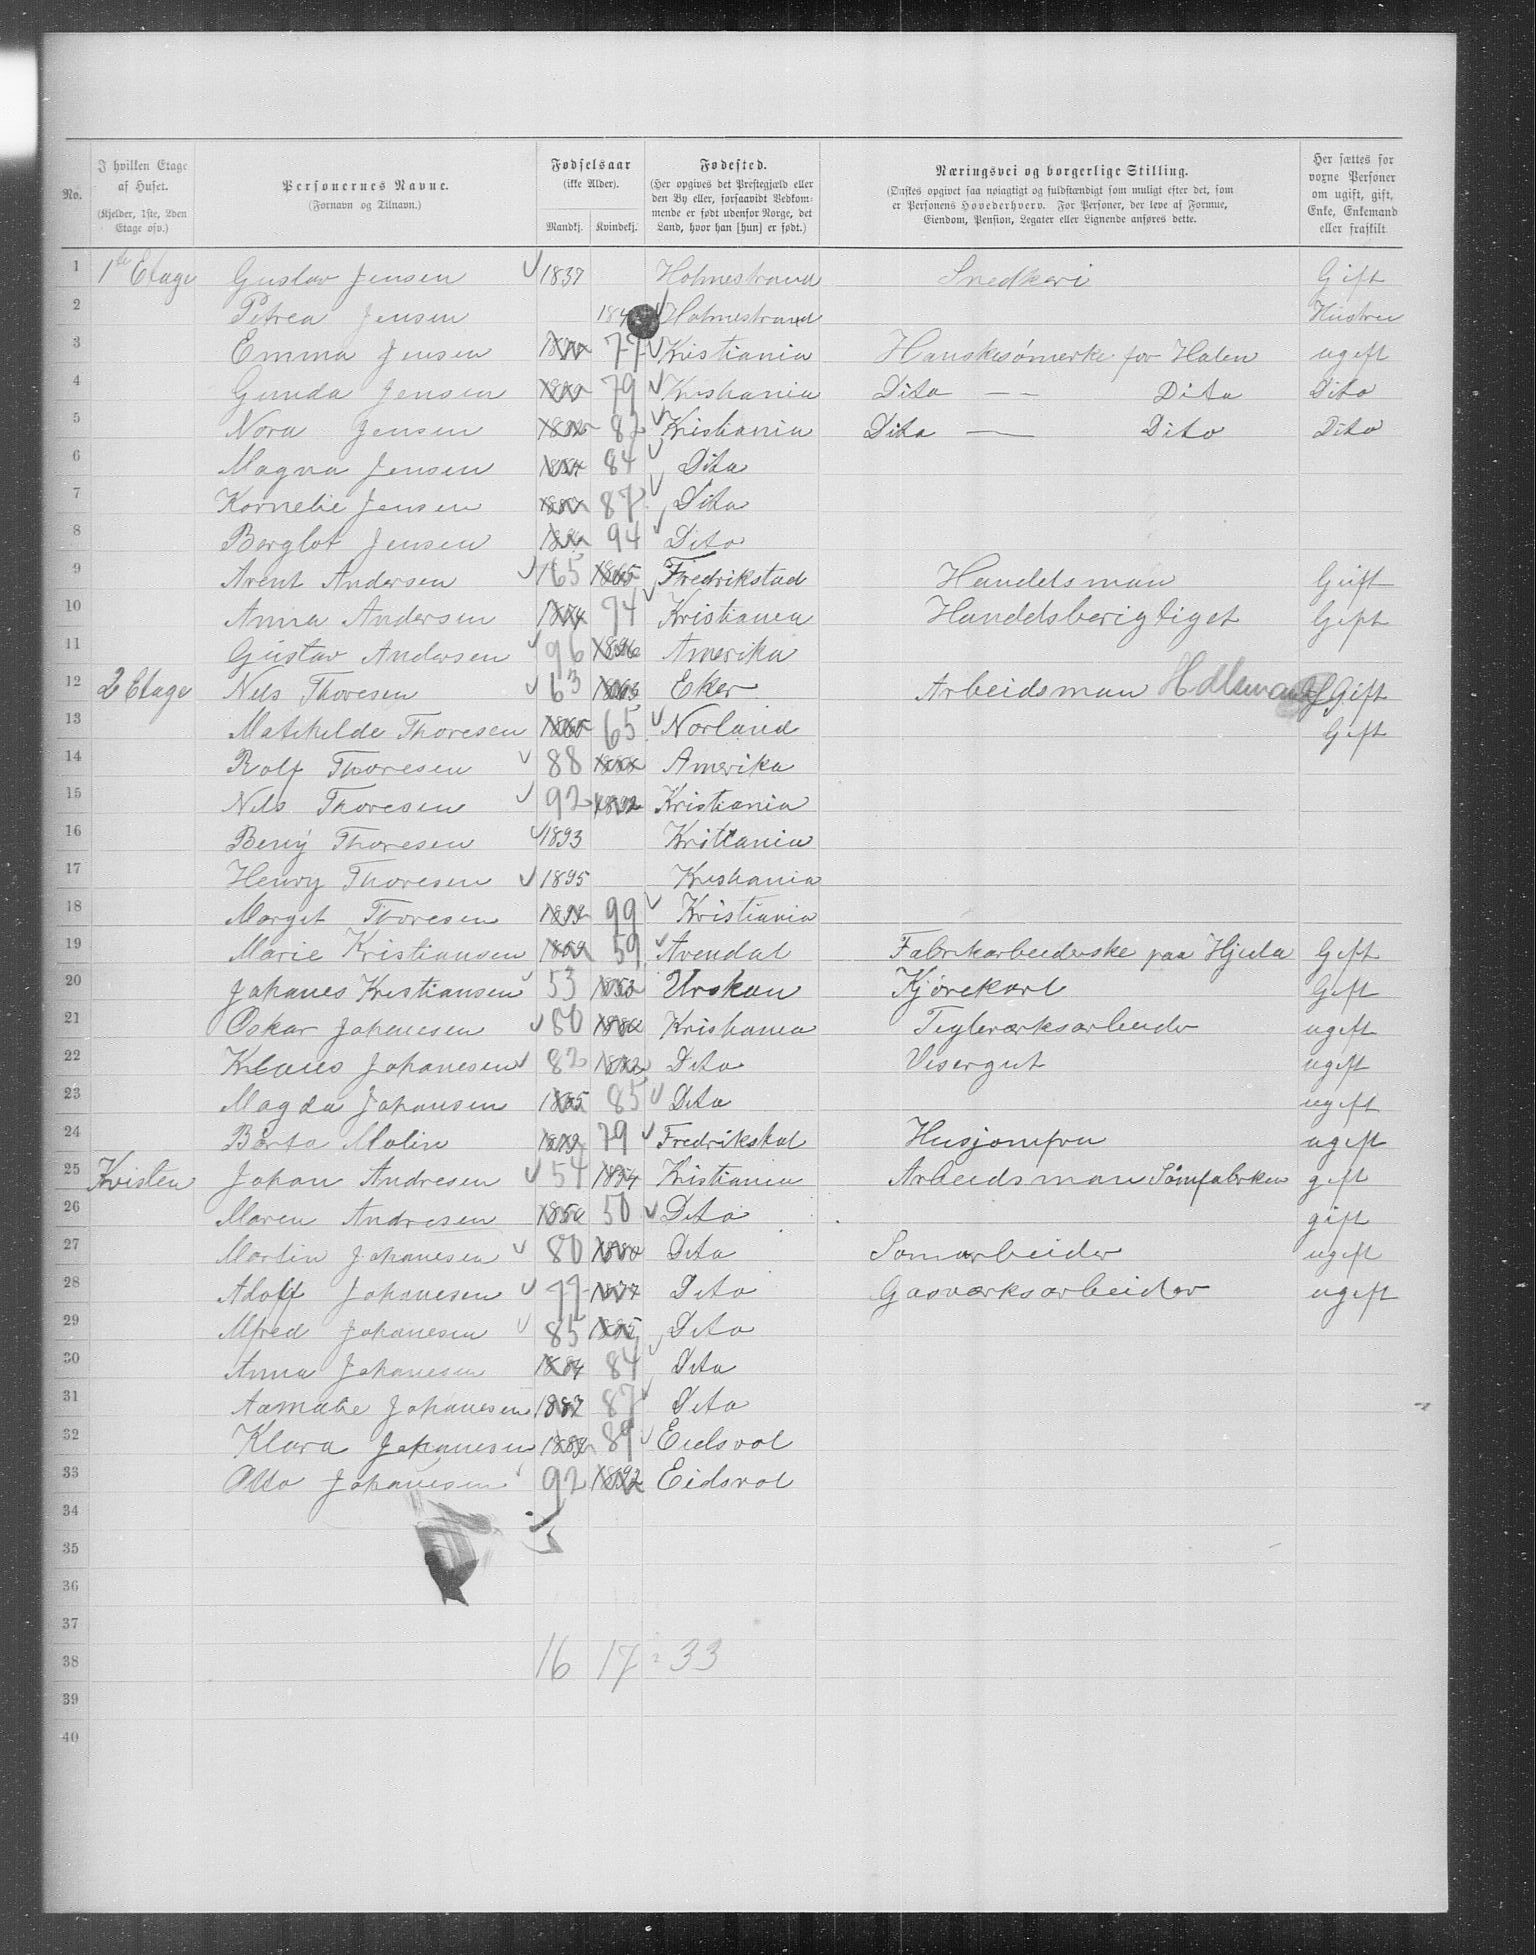 No.
I hvilken Etage af Huset. (Kjelder, 1ste, 2den Etage osv.)
Personernes Navne. (Fornavn og Tilnavn.)
Fødselsaar (ikke Alder). Mandkj. Kvindekj.
Fødested. (Her opgives det Prestegjæld eller den By eller, forsaavidt Vedkommende er født udenfor Norge, det Land, hvor han [hun] er født.)
Næringsvei og borgerlige Stilling. (Ønskes opgivet saa nøiagtigt og fuldstændigt som muligt efter det, som er Personens Hovederhverv. For Personer, der leve af Formue, Eiendom, Pension, Legater eller Lignende anføres dette.
Her sættes for voxne Personer om ugift, gift, Enke, Enkemand eller fraskilt
1 1ste Etage Gustav Jensen 1837 Holmestrand Snedkeri Gift
2 Petrea Jensen 184 Holmestrand Hustru
3 Emma Jensen 77 Kristiania Hanskesømerke for Halen ugift
4 Gunda Jensen 1879 79 Kristiania Dito — — Dito Dito
5 Nora Jensen 1882 82 Kristiania Dito — Dito Dito
6 Magna Jensen 1884 84 Dito
7 Kornelie Jensen 1887 87 Dito
8 Borglot Jensen 94 Dito
9 Arent Andersen 65 1865 Fredrikstad Handelsman Gift
10 Anna Andersen 1874 74 Kristiania Handelsberigtiget Gift
11 Gustav Andersen 96 1896 Amerika
12 2 Etage Nils Thoresen 63 1863 Eker Arbeidsman Gift
13 Mathilde Thoresen 1865 65 Norland Gift
14 Rolf Thoresen 88 1888 Amerika
15 Nils Thoresen 92 1892 Kristiania
16 Beny Thoresen 1893 Kristiania
17 Henry Thoresen 1895 Kristiania
18 Marget Thoresen 1899 99 Kristiania
19 Marie Kristiansen 1859 59 Arendal Fabrikarbeiderske paa Hjula Gift
20 Johanes Kristiansen 53 1853 Urskau Kjørekarl Gift
21 Oskar Johanesen 80 1880 Kristiania Teglverksarbeider ugift
22 Klaus Johanesen 82 1882 Dito Visergut ugift
23 Magda Johansen 1885 85 Dito ugift
24 Berta Malin 1879 79 Fredrikstad Husjomfru ugift
25 Kvisten Johan Andresen 54 1854 Kristiania Arbeidsman Sømfabrken gift
26 Maren Andresen 1850 50 Dito gift
27 Martin Johanesen 80 1880 Dito Somarbeider ugift
28 Adolf Johanesen 77 1877 Dito Gasværksarbeider ugift
29 Alfred Johanesen 85 1885 Dito
30 Anna Johanesen 1884 84 Dito
31 Aamalie Johanesen 1887 87 Dito
32 Klara Johanesen 1889 89 Eidsvol
33 Otto Johanesen 92 1892 Eidsvol
34
35
36
37
38 16 17 = 33
39
40